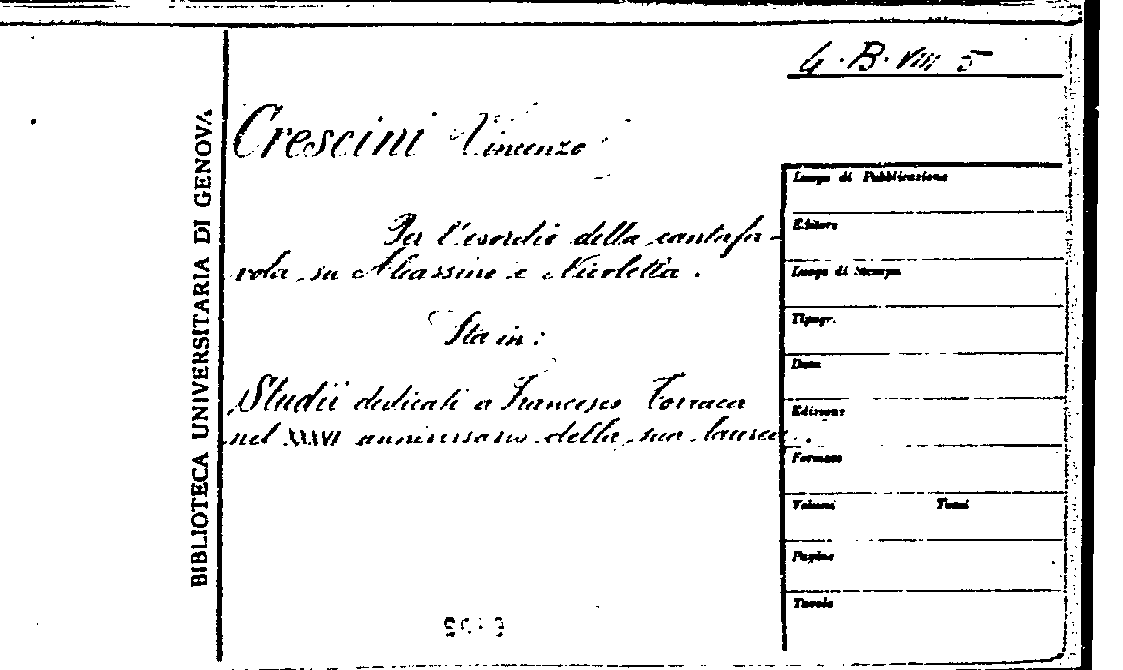 4.B.VIII 5
BIBLIOTECA UNIVERSITARIA DI GENOVA
Crescini Vincenzo
Per l'esordio della cantafa-
vola su Alcassino e Nicoletta.
Sta in:
Studii dedicati a Francesco Torraca
nel XXXVI anniversario della sua laurea.
Luogo di Pubblicazione
Editore
Luogo di Stampa
Tipogr.
Data
Edizione
Formato
Volumi Tomi
Pagine
Tavole